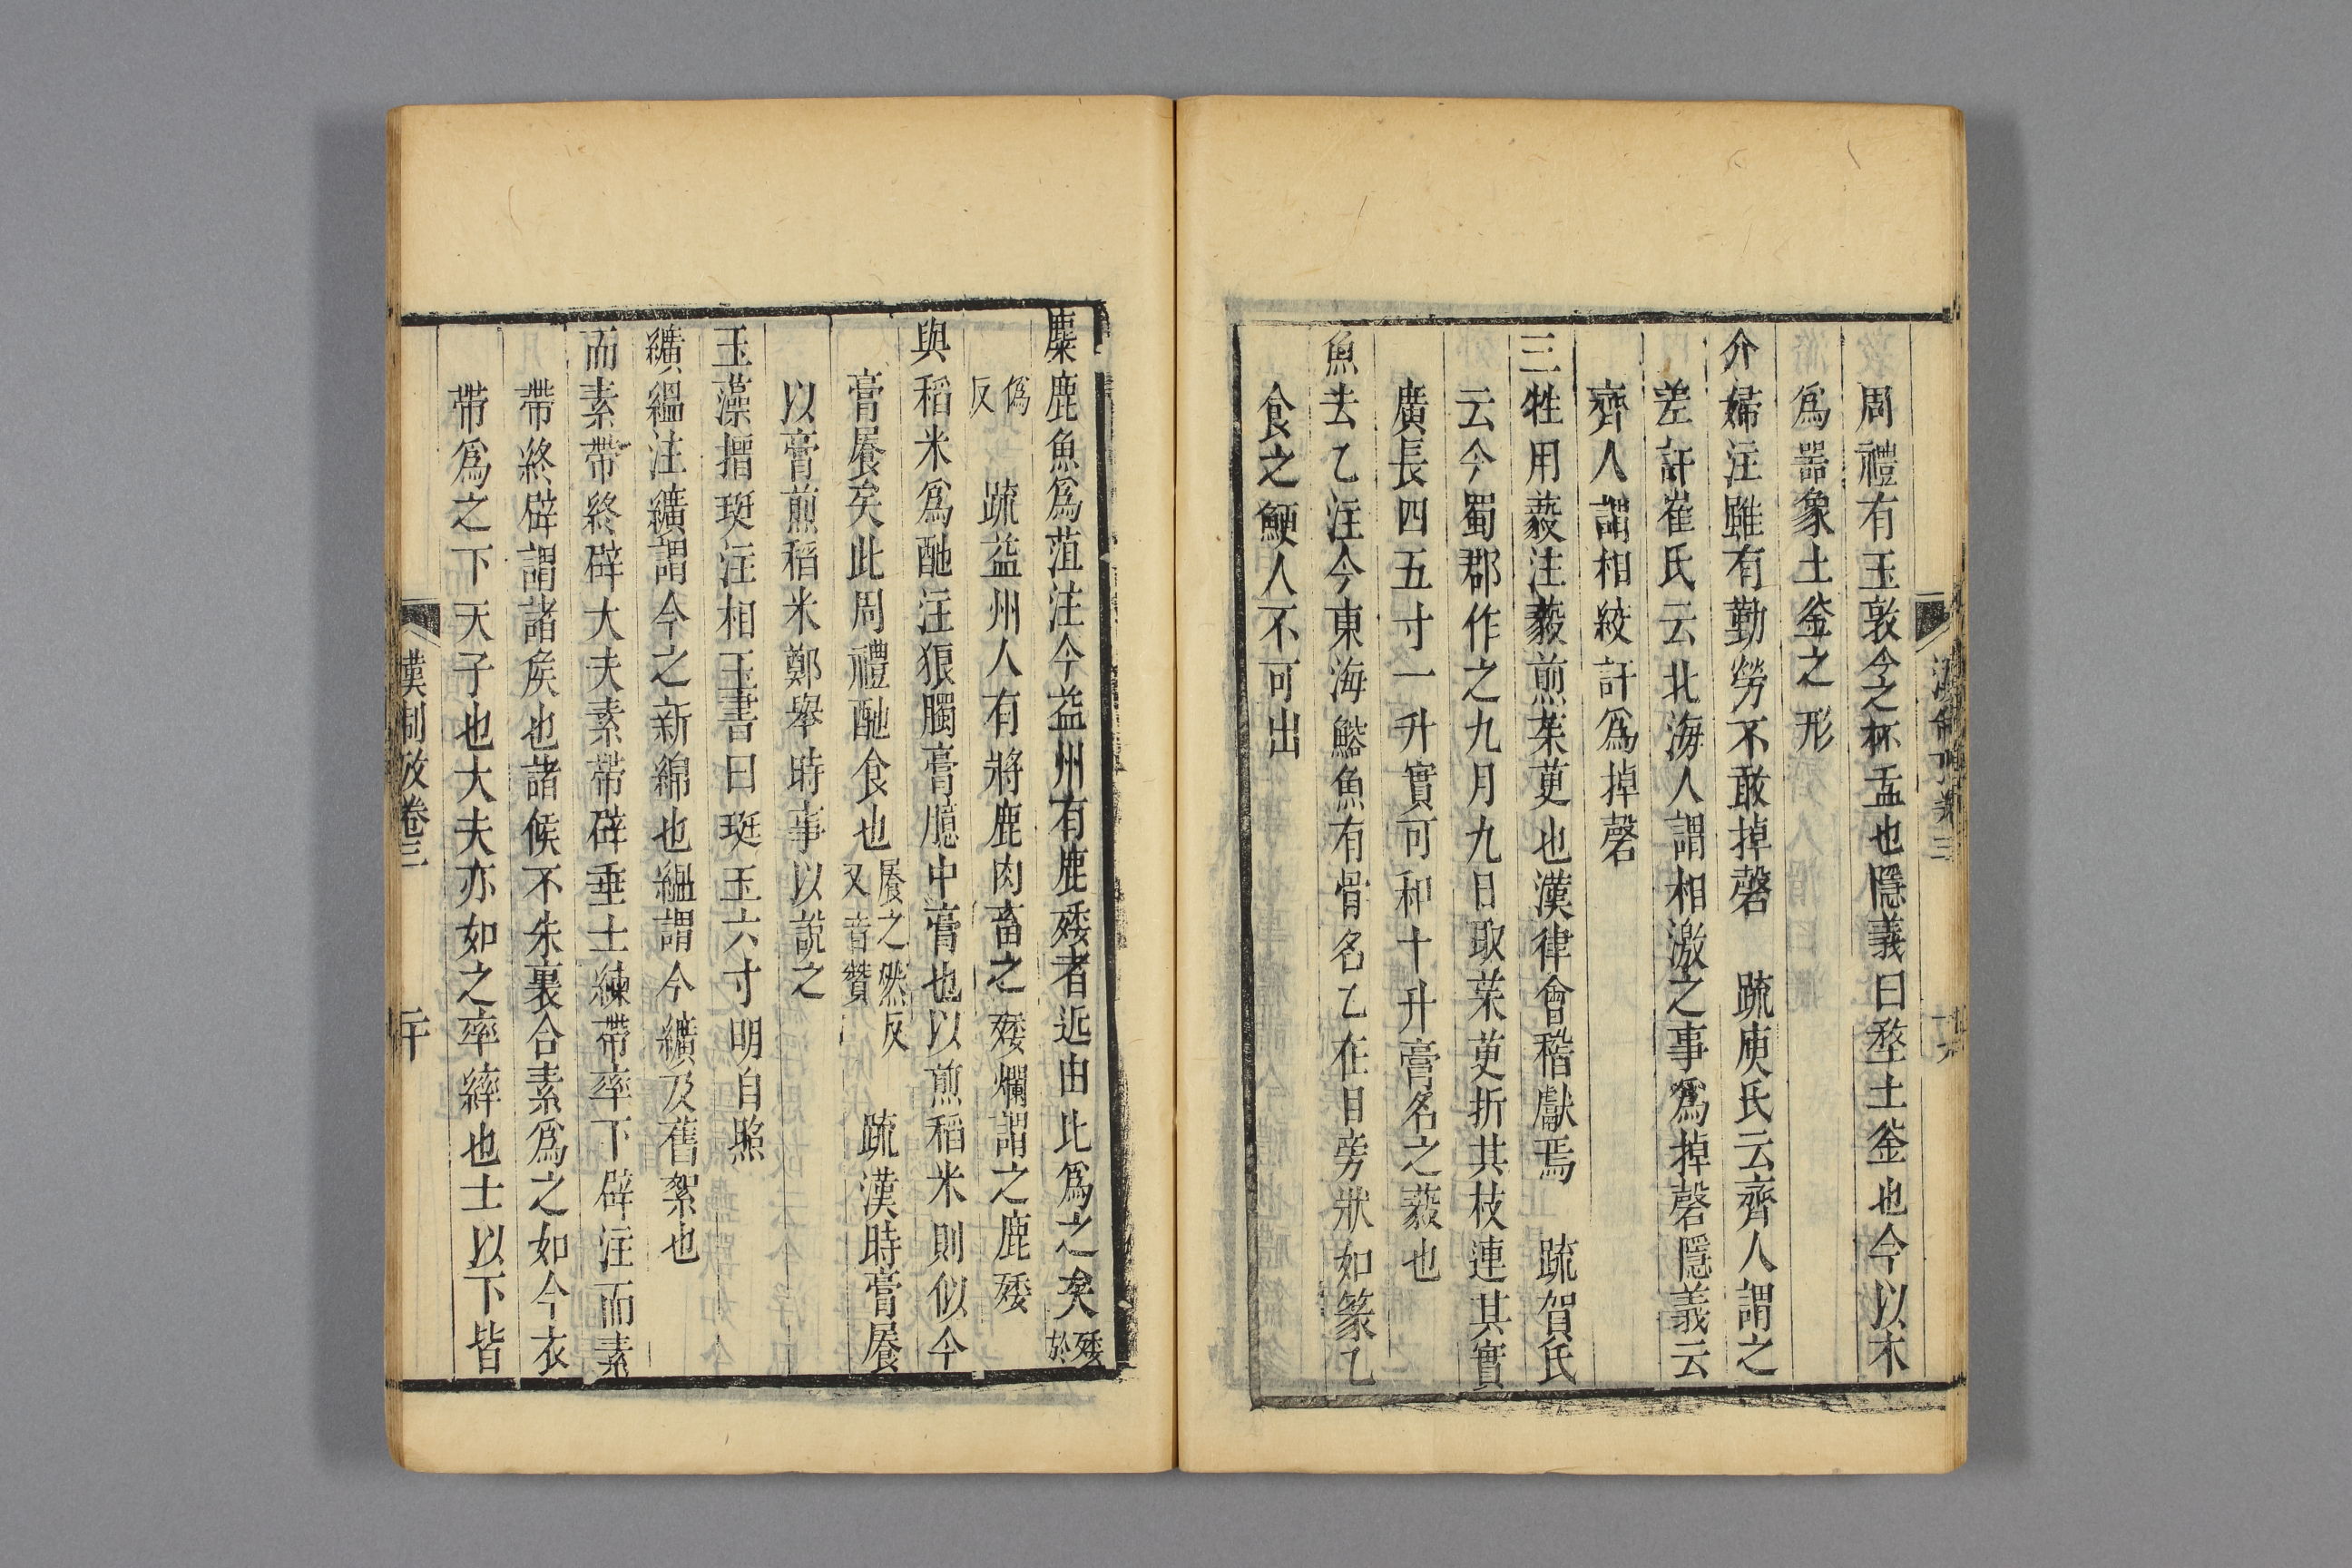 周禮有玉敦今之杯盂也隱義曰堥土釜也今以木
爲器象土釜之形
介婦注雖有勤勞不敢掉磬　疏庾氏云齊人謂之
差訐崔氏云北海人謂相激之事爲掉磬隱義云
齊人謂相絞訐爲掉磬
三牲用藙注藙煎茱萸也漢律會稽獻焉　疏賀氏
云今蜀郡作之九月九日取茱萸折其枝連其實
廣長四五寸一升實可和十升膏名之藙也
魚去乙注今東海鰫魚有骨名乙在目旁狀如篆乙
食之鯁人不可出
麋鹿魚爲菹注今益州有鹿䐅者近由此爲之矣䐅於
僞反　疏益州人有將鹿肉畜之䐅爛謂之鹿䐅
與稻米爲酏注狼臅膏臆中膏也以煎稻米則似今
膏𩞽矣此周禮酏食也𩞽之然反又音贊　疏漢時膏𩞽
以膏煎稻米鄭舉時事以說之
玉藻搢珽注相玉書曰珽玉六寸明自照
纊縕注纊謂今之新綿也縕謂今纊及舊絮也
而素帶終辟大夫素帶辟垂士練帶率下辟注而素
帶終辟謂諸矦也諸候不朱裏合素爲之如今衣
帶爲之下天子也大夫亦如之率繂也士以下皆
漢制攷卷三
二十